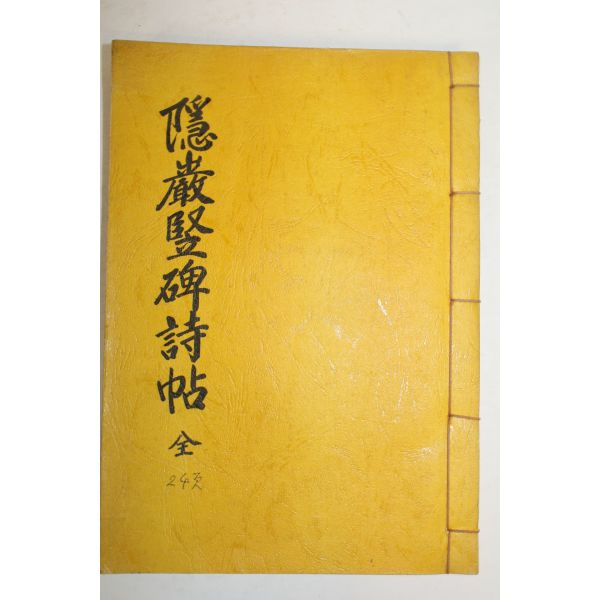 隱巖竪碑詩帖
全
24頁